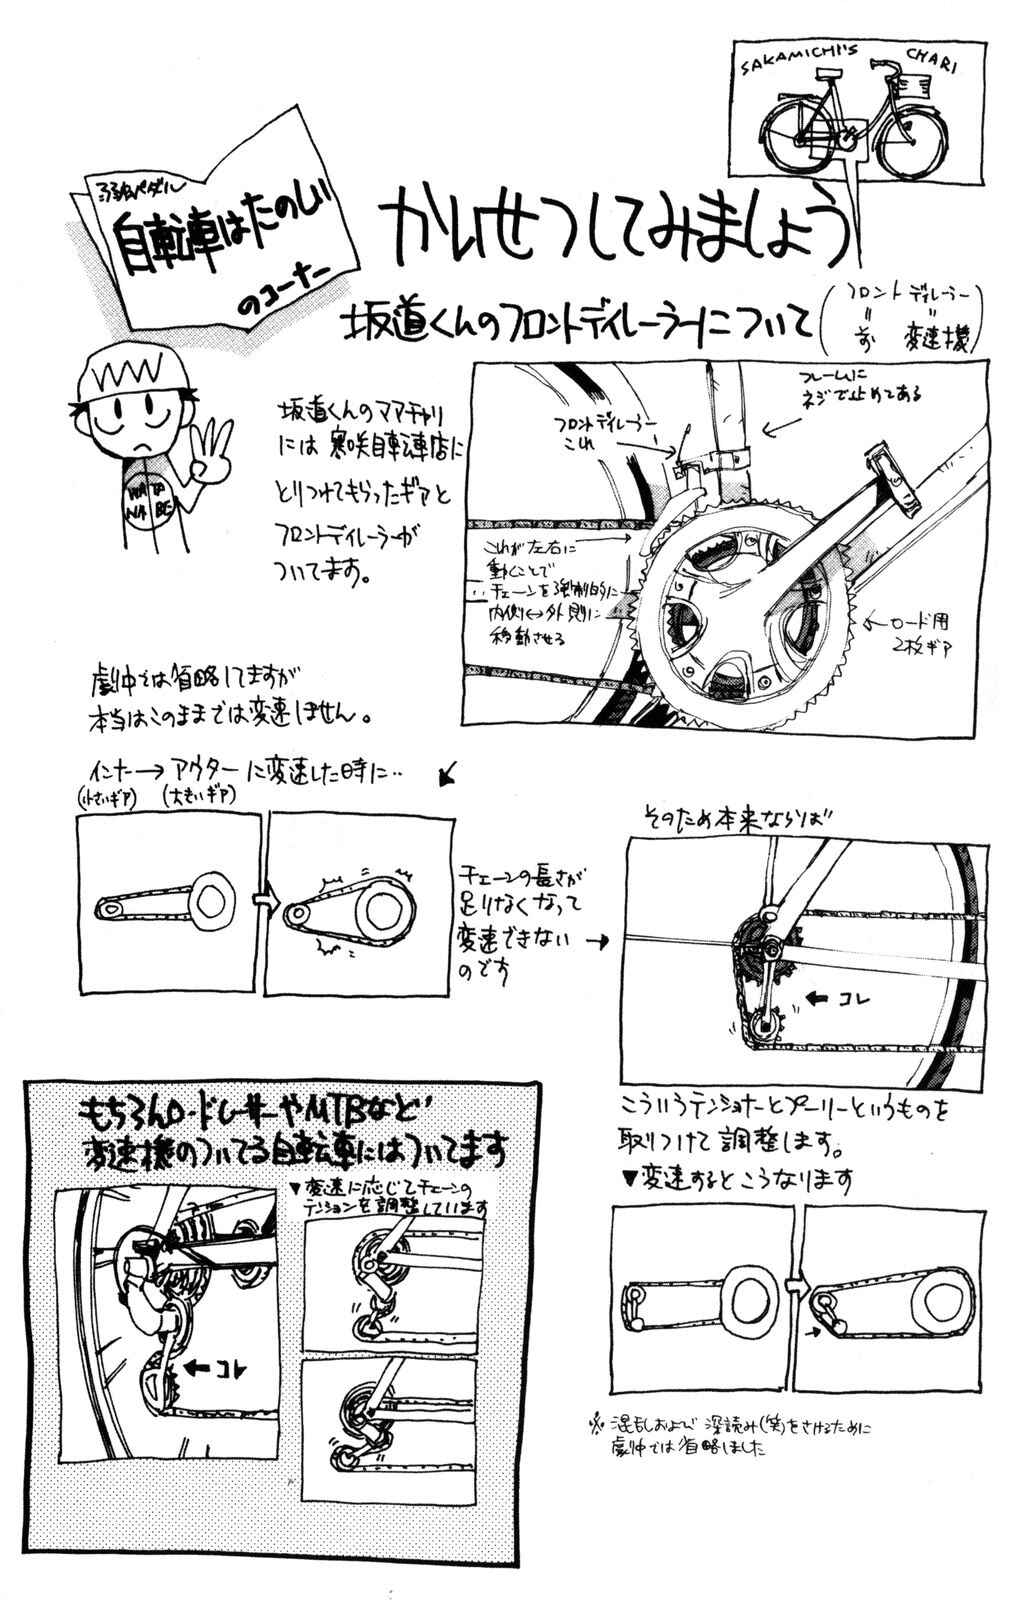 SAKAMICHI'S CHARI
弱虫ペダル
自転車はたのしい
のコーナー
かいせつしてみましょう
坂道くんのフロントディレーラーについて
(フロント ディレーラー
〃 〃
前 変速機)
WATA
NABE
坂道くんのママチャリ
には寒咲自転車店に
とりつけてもらったギアと
フロントディレーラーが
ついてます。
フロントディレーラー
これ
フレームに
ネジで止めてある
これが左右に
動くことで
チェーンを強制的に
内側↔外側に
移動させる
ロード用
2枚ギア
劇中では省略してますが
本当はこのままでは変速しません。
インナー→アウターに変速した時に‥
(小さいギア) (大きいギア)
チェーンの長さが
足りなくなって
変速できない
のです
そのため本来ならば
コレ
こういうテンショナーとプーリーというものを
取りつけて調整します。
▼変速するとこうなります
もちろんロードレーサーやMTBなど
変速機のついてる自転車にはついてます
▼変速に応じてチェーンの
テンションを調整しています
コレ
※混乱および深読み(笑)をさけるために
劇中では省略しました